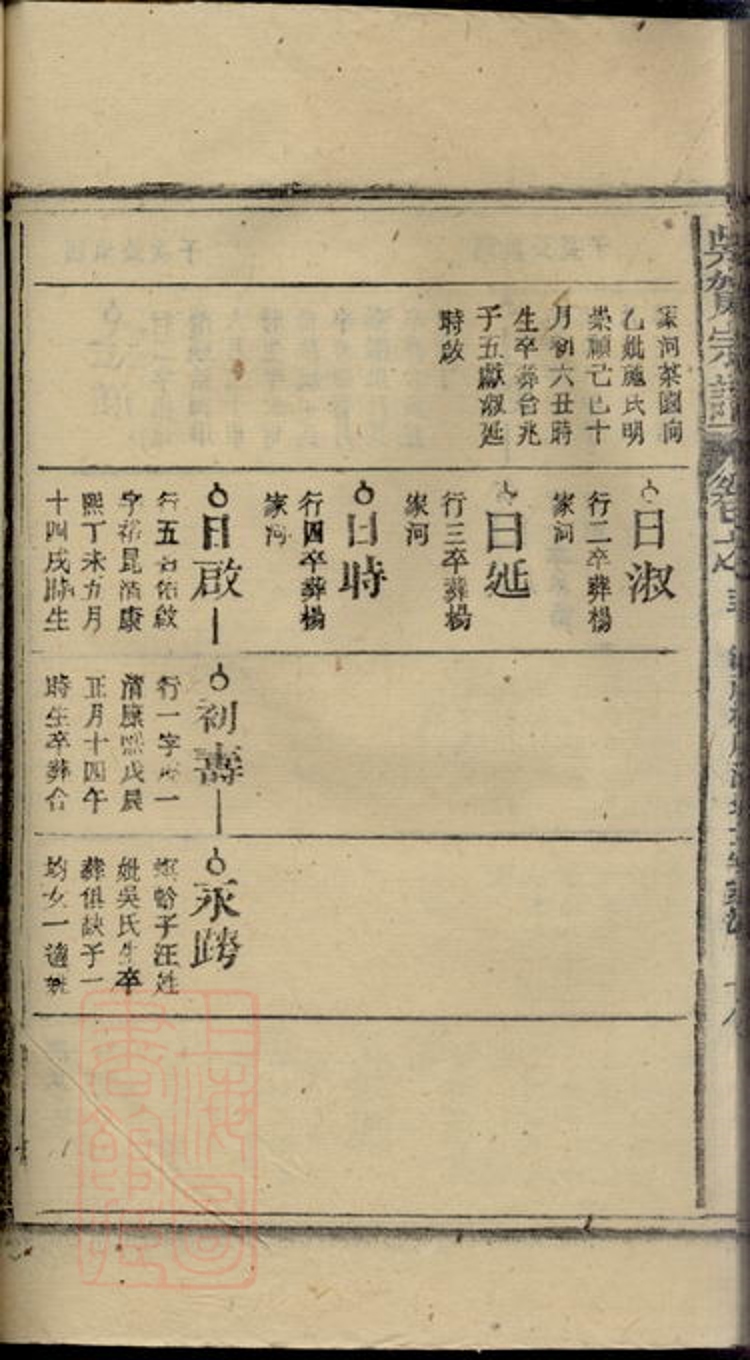 家河茶園向
乙妣施氏明
崇禎己巳十
月初六丑時
生卒葬台兆
子五獻淑延
時啟
日淑
行二卒葬楊
家河
日延
行三卒葬楊
家河
日時
行四卒葬楊
家河
日啟
行五名佑啟
字裕昆清康
熙丁未九月
十四戌時生
初壽
行一字一
清康熙戊辰
正月十四午
時生卒葬合
永
螟蛉子汪姓
妣吳氏生卒
葬俱缺子一
均女一適姚
宗譜
上海圖書館藏